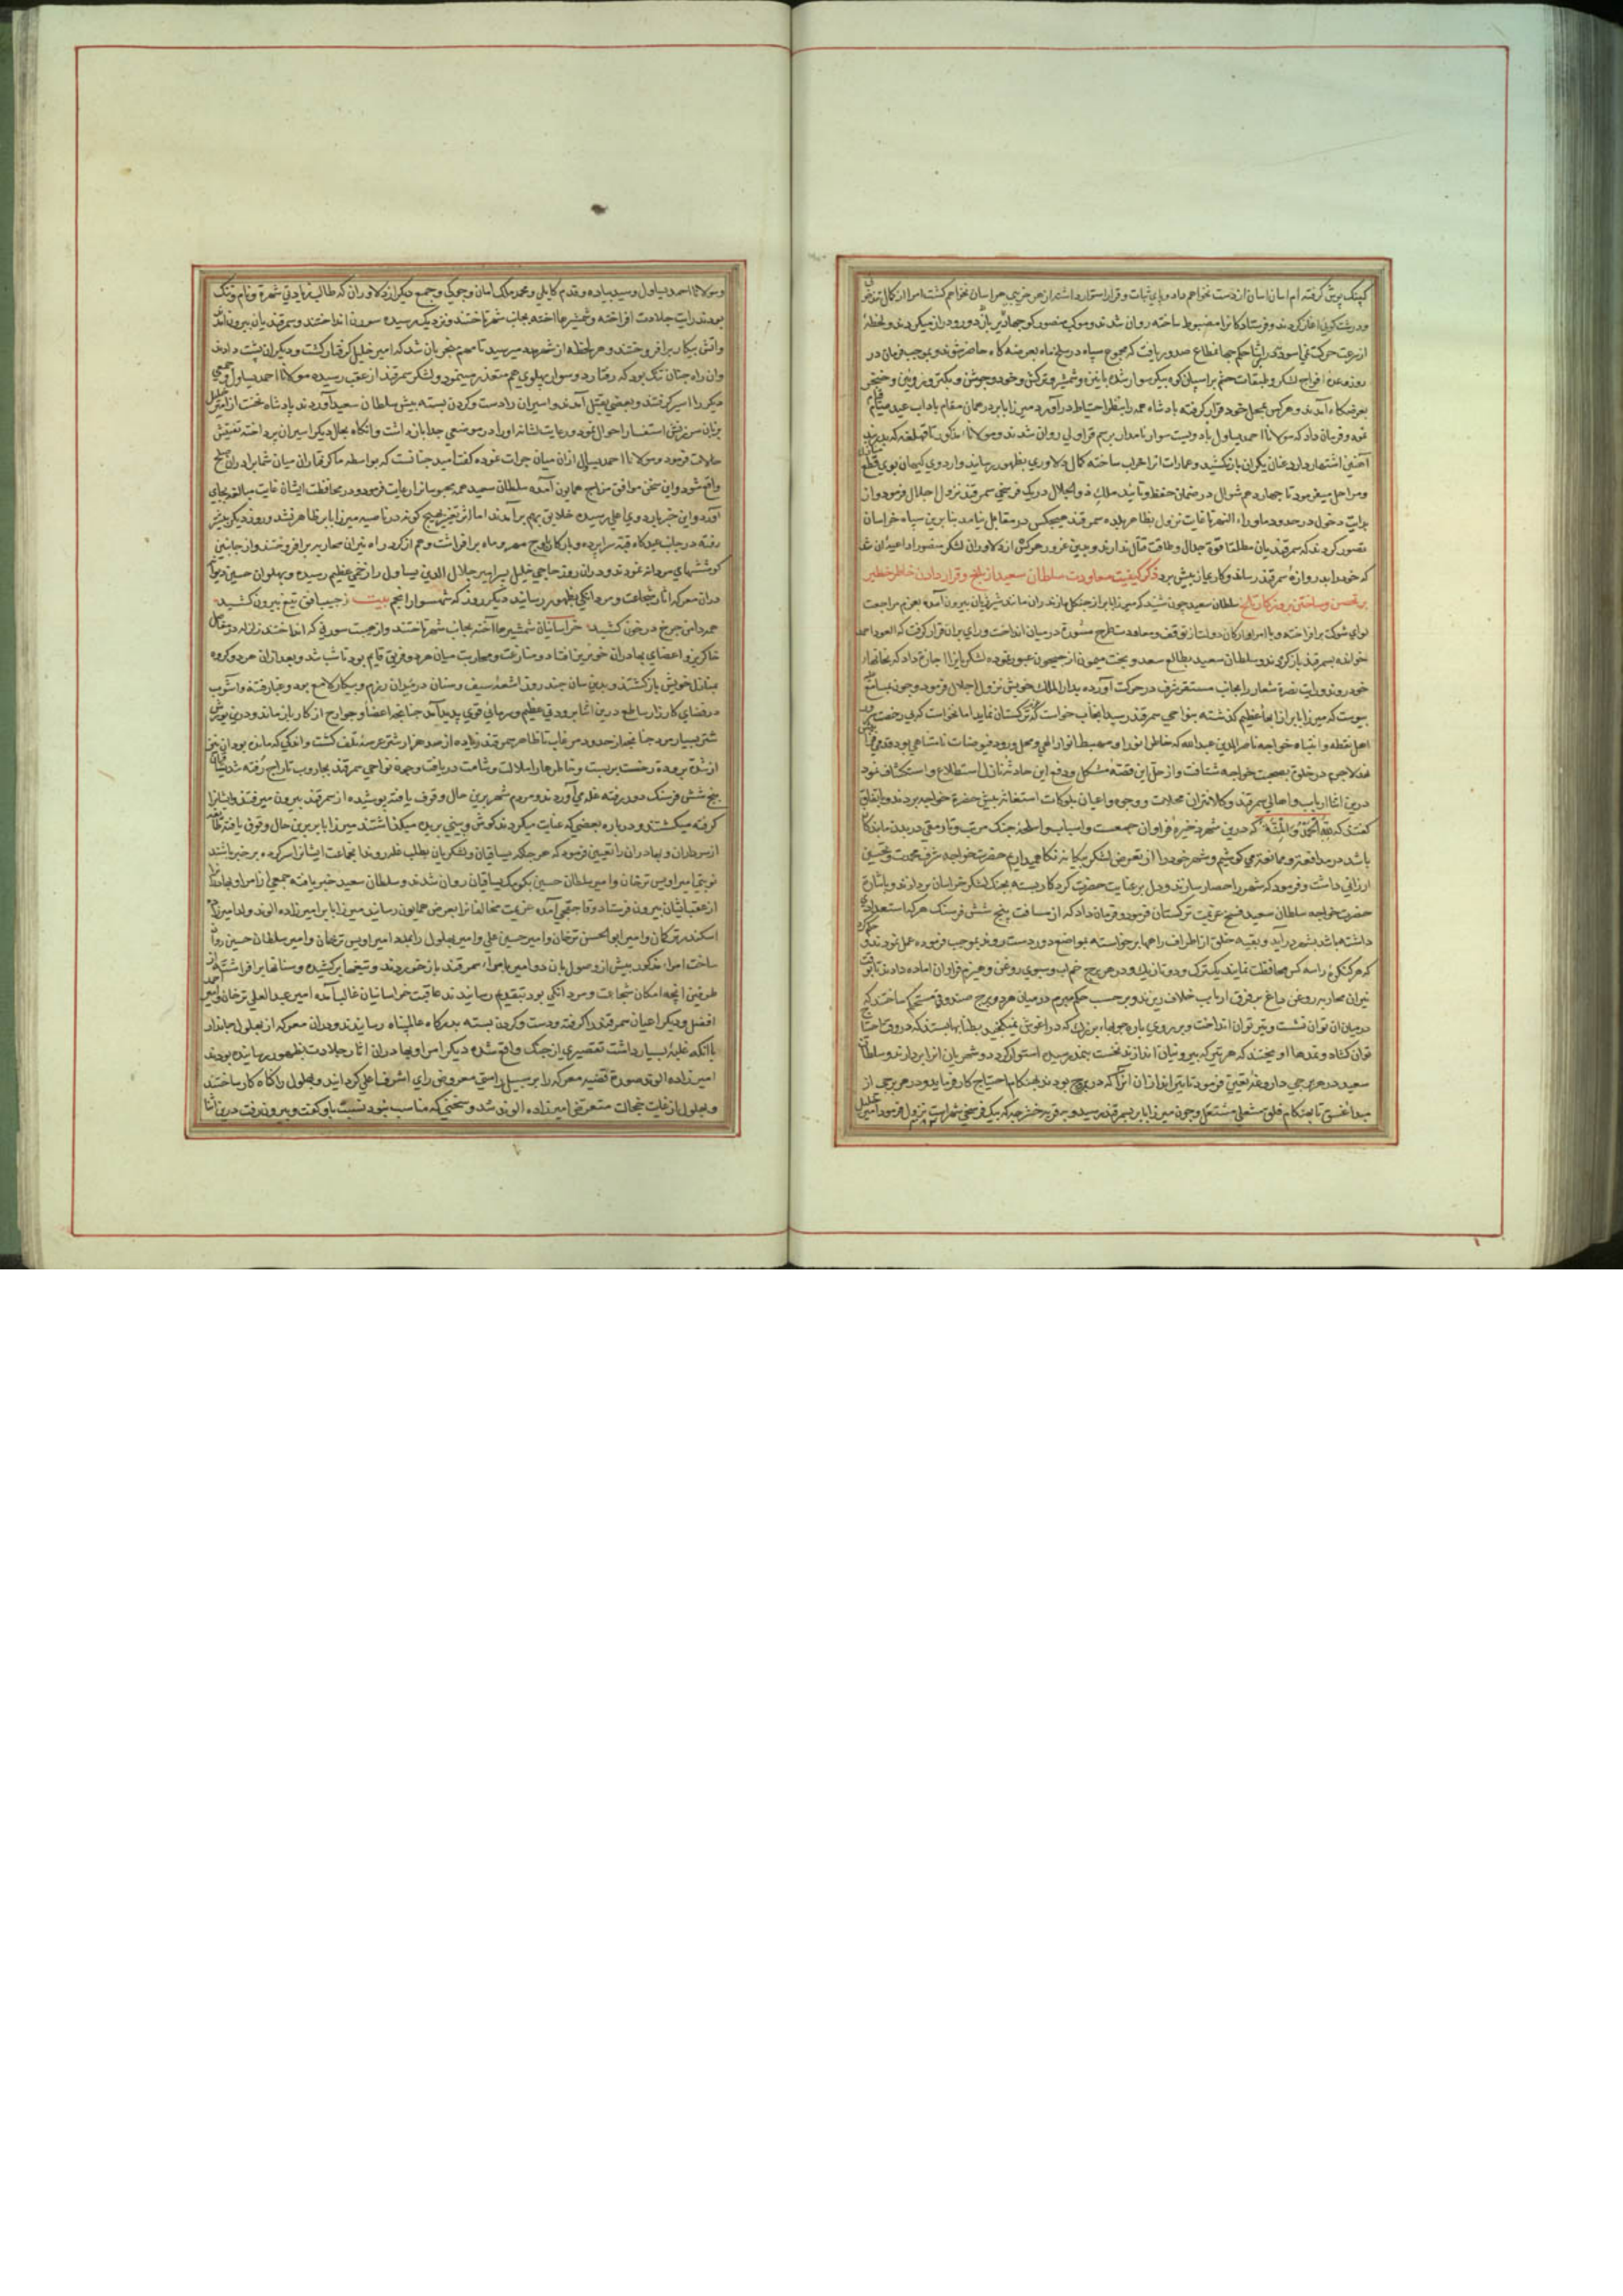 کپنک پوش گرفته ام اسان اسان از دست نخواهم داد و پای ثبات و قرار استوار داشته از هر خریبی هراسان نخواهم کشت امرا از کمال
و درشت کویی اغاز کردند و فرستادکانرا مضبوط ساخته روان شدند و موکب منصور کوچ بهادر باز دور و دراز میکردند و لحظه
از سرعت حرکت نمی اسود و در اثنا حکم جهانمطاع صدور یافت که مجموع سپاه در سلخ ماه بعرضه کاه حاضر شوند و بموجب فرمان در
روز معین افواج لشکر و طبقات حشم بر اسپان کوه پیکر سوار شده با نیزه و شمشیر و ترکش و خود و جوشن و
بعرضکاه آمدند و هر کس بمحل خود قرار گرفته پادشاه همه را بنظر احتیاط در آورد و میرزا بابر در همان مقام باداب عید صیام قیام
نمود و فرمان داد که مولانا احمد یساول با دویست سوار نامدار برسم قراولی روان شدند و مولانا مذکور تا قهلغه که بدربند
آهنین اشتهار دارد عنان یکران باز نکشید و عمارات انرا خراب ساخته کمال دلاوری بظهور رسانید و اردوی کیهان پوی قطع منازل
و مراحل میفرمود تا چهاردهم شوال در ضمان حفظ و تائید ملک ذو الجلال در یک فرسخی سمرقند نزول اجلال فرمود و از
بدایت دخول در حدود ماوراء النهر تا غایت نزول بظاهر بلده سمرقند هیچکس در مقابل نیامد بنا برین سپاه خراسان
تصور کردند که سمرقندیان مطلقا قوة جدال و طاقت قتال ندارند و بدین غرور هرکس از دلاوران لشکر منصور را داعیه ان شد
که خود را بدروازهٔ سمرقند رساند و کاری از پیش برد ذکر کیفیت معاودت سلطان سعید از بلخ و قرار دادن خاطر خطیر
بر تحصن و ساختن برونه کارزار سلطان سعید چون شنید که میرزا بابر از جنکل مازندران مانند شیر ژیان بیرون آمده بعزم مراجعت
لوای شوکت برافراخته و با امرا و ارکان دولت از توقف و معاودت طرح مشورة در میان انداخت و رای بران قرار گرفت که العود احمد
خوانده بسمرقند باز گردند و سلطان سعید بطالع سعد و بخت میمون از جیحون عبور نموده لشکریانرا اجازت داد که بخانهاء
خود روند و رایت نصرة شعار را بجانب مستقر شرف در حرکت آورده بدار الملک خویش نزول اجلال فرمود و چون بمسامع
پیوست که میرزا بابر از آب عظیم کذشته بنواحی سمرقند رسید انجناب خواست که بترکستان نماید اما نخواست که بی رخصت
اهل یقظه و انتباه خواجه ناصر الدین عبدالله که خاطر انور او مهبط انوار الهی و محل ورود فیوضات نامتناهی بود
نهد لاجرم در خلوة بصحبت خواجه شتافت و از حل این قصهٔ مشکل و دفع این حادثه نازل استطلاع و استکشاف نمود
درین اثنا ارباب و اهالی سمرقند و کلانتران محلات و وجوه و اعیان بلوکات استغاثه پیش حضرة خواجه بردند و باتفاق
گفتند که لله الحمد و المنة که درین شهر ذخیرهٔ فراوان جمعست و اسباب و اسلحهٔ جنک مرتب و تا رمقی در بدن ما بندکان
باشد در مدافعت و ممانعت می کوشیم و شهر خود را از تعرض لشکر بیکانه نکاه می داریم حضرت خواجه شرف محمدت و تحسین
ارزانی داشت و فرمود که شهر را حصار سازند و دل بر عنایت حضرت کردکار بسته بجنک لشکر خراسان بردارند و باشارة
حضرت خواجه سلطان سعید فسخ عزیمت ترکستان فرمود و فرمان داد که از مسافت پنج شش فرسنک هر که استعدادی
داشته باشد بشهر در آید و بقیه خلق از اطراف راهها برخواسته بمواضع دوردست روند بموجب فرموده عمل نمودند و حکم کرد
که هر کنکره را سه کس محافظت نمایند یک ترک و دو تازیک و در هر برج خم اب و سبوی روغن و هیزم فراوان اماده دارند تا بوقت
نیران محاربه روغن داغ بر فرق ارباب خلاف ریزند و بر حسب حکم مبرم در میان هر دو برج صندوقی مستحکم ساختند که
در میان ان توان نشست و تیر توان انداخت و بر روی باره چوبهاء بزرک که در اغوش نمیکنجید بطنابها بستند که در وقت احتیاج
توان کشاد و قدها اویختند که هر تیر که بیرونیان اندازند نخست بنمد رسیده استوار کردد و شهریان انرا بردارند و سلطان
سعید در هر برجی داروغه تعیین فرمود تا تیراندازان انرا که در برج بودند بهنکام احتیاج کار فرماید و در هر برجی از
مبداء غسق تا بهنکام فلق مشعلی مشتعل و چون میرزا بابر بسمرقند رسید و بقریه خفرجه که بیک فرسخی شهر است نزول فرمود امیر خلیل
و مولانا احمد یساول و سید پیاده و مقدم کابلی و محمد ملک امان و چوک و جمعی دیکر از دلاوران که طالب زیادتی شهرة و نام و ننک
بودند رایت جلادت افراخته و شمشیرها اخته بجانب شهر تاختند و نزدیک رسیده سورن انداختند و سمرقندیان بیرون آمدند
و اتش پیکار برافروختند و هر لحظه از شهر مدد میرسید تا مهم منجر بان شد که امیر خلیل گرفتار کشت و دیکران پشت دادند
وان راه چنان تنک بود که رفتار دو سوار پهلوی هم متعذر مینمود و لشکر سمرقند از عقب رسیده مولانا احمد یساول و جمعی
دیکر را اسیر گرفتند و بعضی بقتل آمدند و اسیران را دست و گردن بسته پیش سلطان سعید آوردند پادشاه نخست از امیر خلیل
بزبان سرزنش استفسار احوال نمود و رعایت لشانه او را در موضعی جدا باز داشت و انکاه بحال دیکر اسیران پرداخته تفتیش
حالات فرمود و مولانا احمد یساول ازان میان جرات نموده کفت امید چنانست که بواسطه ما کرفتاران میان شما برادران صلح
واقع شود و این سخن موافق مزاج همایون آمده سلطان سعید همه محبوسانرا رعایت فرمود و در محافظت ایشان غایت مبالغه بجای
آورد و این خبر باردوی اعلی رسیده خلایق بهم برآمدند اما اثر تغیر بهیچ کونه در ناصیه میرزا بابر ظاهر نشد و روز دیکر پیشتر
رفته در جانب عیدکاه قبهٔ سراپرده و بارکاه باوج مهر و ماه برافراشت و هم از کرد راه نیران محاربه برافروختند و از جانبین
کوششهای مردانه نمودند و دران روز حاجی خلیل پسر امیر جلال الدین یساول را زخمی عظیم رسیده و پهلوان حسین دیوانه
دران معرکه اثار شجاعت و مردانکی بظهور رسانید دیکر روز که شهسوار انجم بیت ز جیب افق تیغ بیرون کشید
همه دامن چرخ در خون کشید خراسانیان شمشیرها آخته بجانب شهر تاختند و از هیبت سورنی که انداختند زلزله در
خاکریز و اعضای بهادران خونریز افتاد و منازعت و محاربت میان هر دو فریق قایم بود تا شب شد و بعد ازان هر دو گروه
بمنازل خویش باز کشتند و بدین سان چند روز اشعهٔ سیف و سنان در میدان رزم و پیکار لامع بود و غبار فتنه و آشوب
در فضای کارزار ساطع درین اثنا برودتی عظیم و سرمائی قوی پدید آمد چنانچه اعضا و جوارح از کار باز ماند و درین یورش
شتر بسیار مرد چنانچه از حدود مرغاب تا ظاهر سمرقند زیاده از صد هزار شتر در عرصهٔ تلف کشت و اندکی که مانده بود ان نیز
از شدة برودة رخت بربست و خاطرها را ملالت و شامت دریافت و چون نواحی سمرقند بجاروب تاراج رفته شد
پنج شش فرسنک دور رفته غله می آوردند و مردم شهر برین حال وقوف یافته پوشیده از سمرقند بیرون میرفتند و ایشانرا
گرفته میکشتند و درباره بعضی که عنایت میکردند گوش و بینی بریده میکذاشتند میرزا بابر برین حال وقوف یافته
از سرداران و بهادران را تعیین فرمود که هرجا که یساقیان و لشکریان بطلب غله روند انجماعت ایشانرا سرکرده بر خبر باشند
نوبتی امیر اویس ترخان و امیر سلطان حسین بکومک یساقیان روان شدند و سلطان سعید خبر یافته جمعی از امرا و بهادران را
از عقب ایشان بیرون فرستاد و قاصدی آمده عزیمت مخالفانرا بعرض همایون رسانید میرزا بابر امیرزاده الوند ولد امیرزاده
اسکندر ترکمان و امیر ابوالحسن ترخان و امیر حسین علی و امیر بهلول را بمدد امیر اویس ترخان و امیر سلطان حسین روان
ساخت امراء مذکور پیش از وصول بان دو امیر با امراء سمرقند باز خوردند و تیغها برکشیده و سنانها برافراشتند از
طرفین انچه امکان شجاعت و مردانکی بود بتقدیم رسانیدند عاقبت خراسانیان غالب آمده امیر عبد العلی ترخان و امیر احمد
افضل و دیکر اعیان سمرقند را گرفته و دست و گردن بسته بدرکاه عالمپناه رسانیدند و دران معرکه از بهلول جاندار
با انکه غلبه بسیار داشت تقصیری از جنک واقع شده دیکر امرا و بهادران اثار جلادت بظهور رسانیده بودند
امیرزاده الوند صورة قضیه معرکه را بر سبیل راستی معروض رای اشرف اعلی گردانید و بهلول را کاه کار ساختند
و بهلول از غایت خجالت متعرض امیرزاده الوند شد و سخنی که مناسب نبود نسبت باو کفت و بیرون رفت درین اثنا